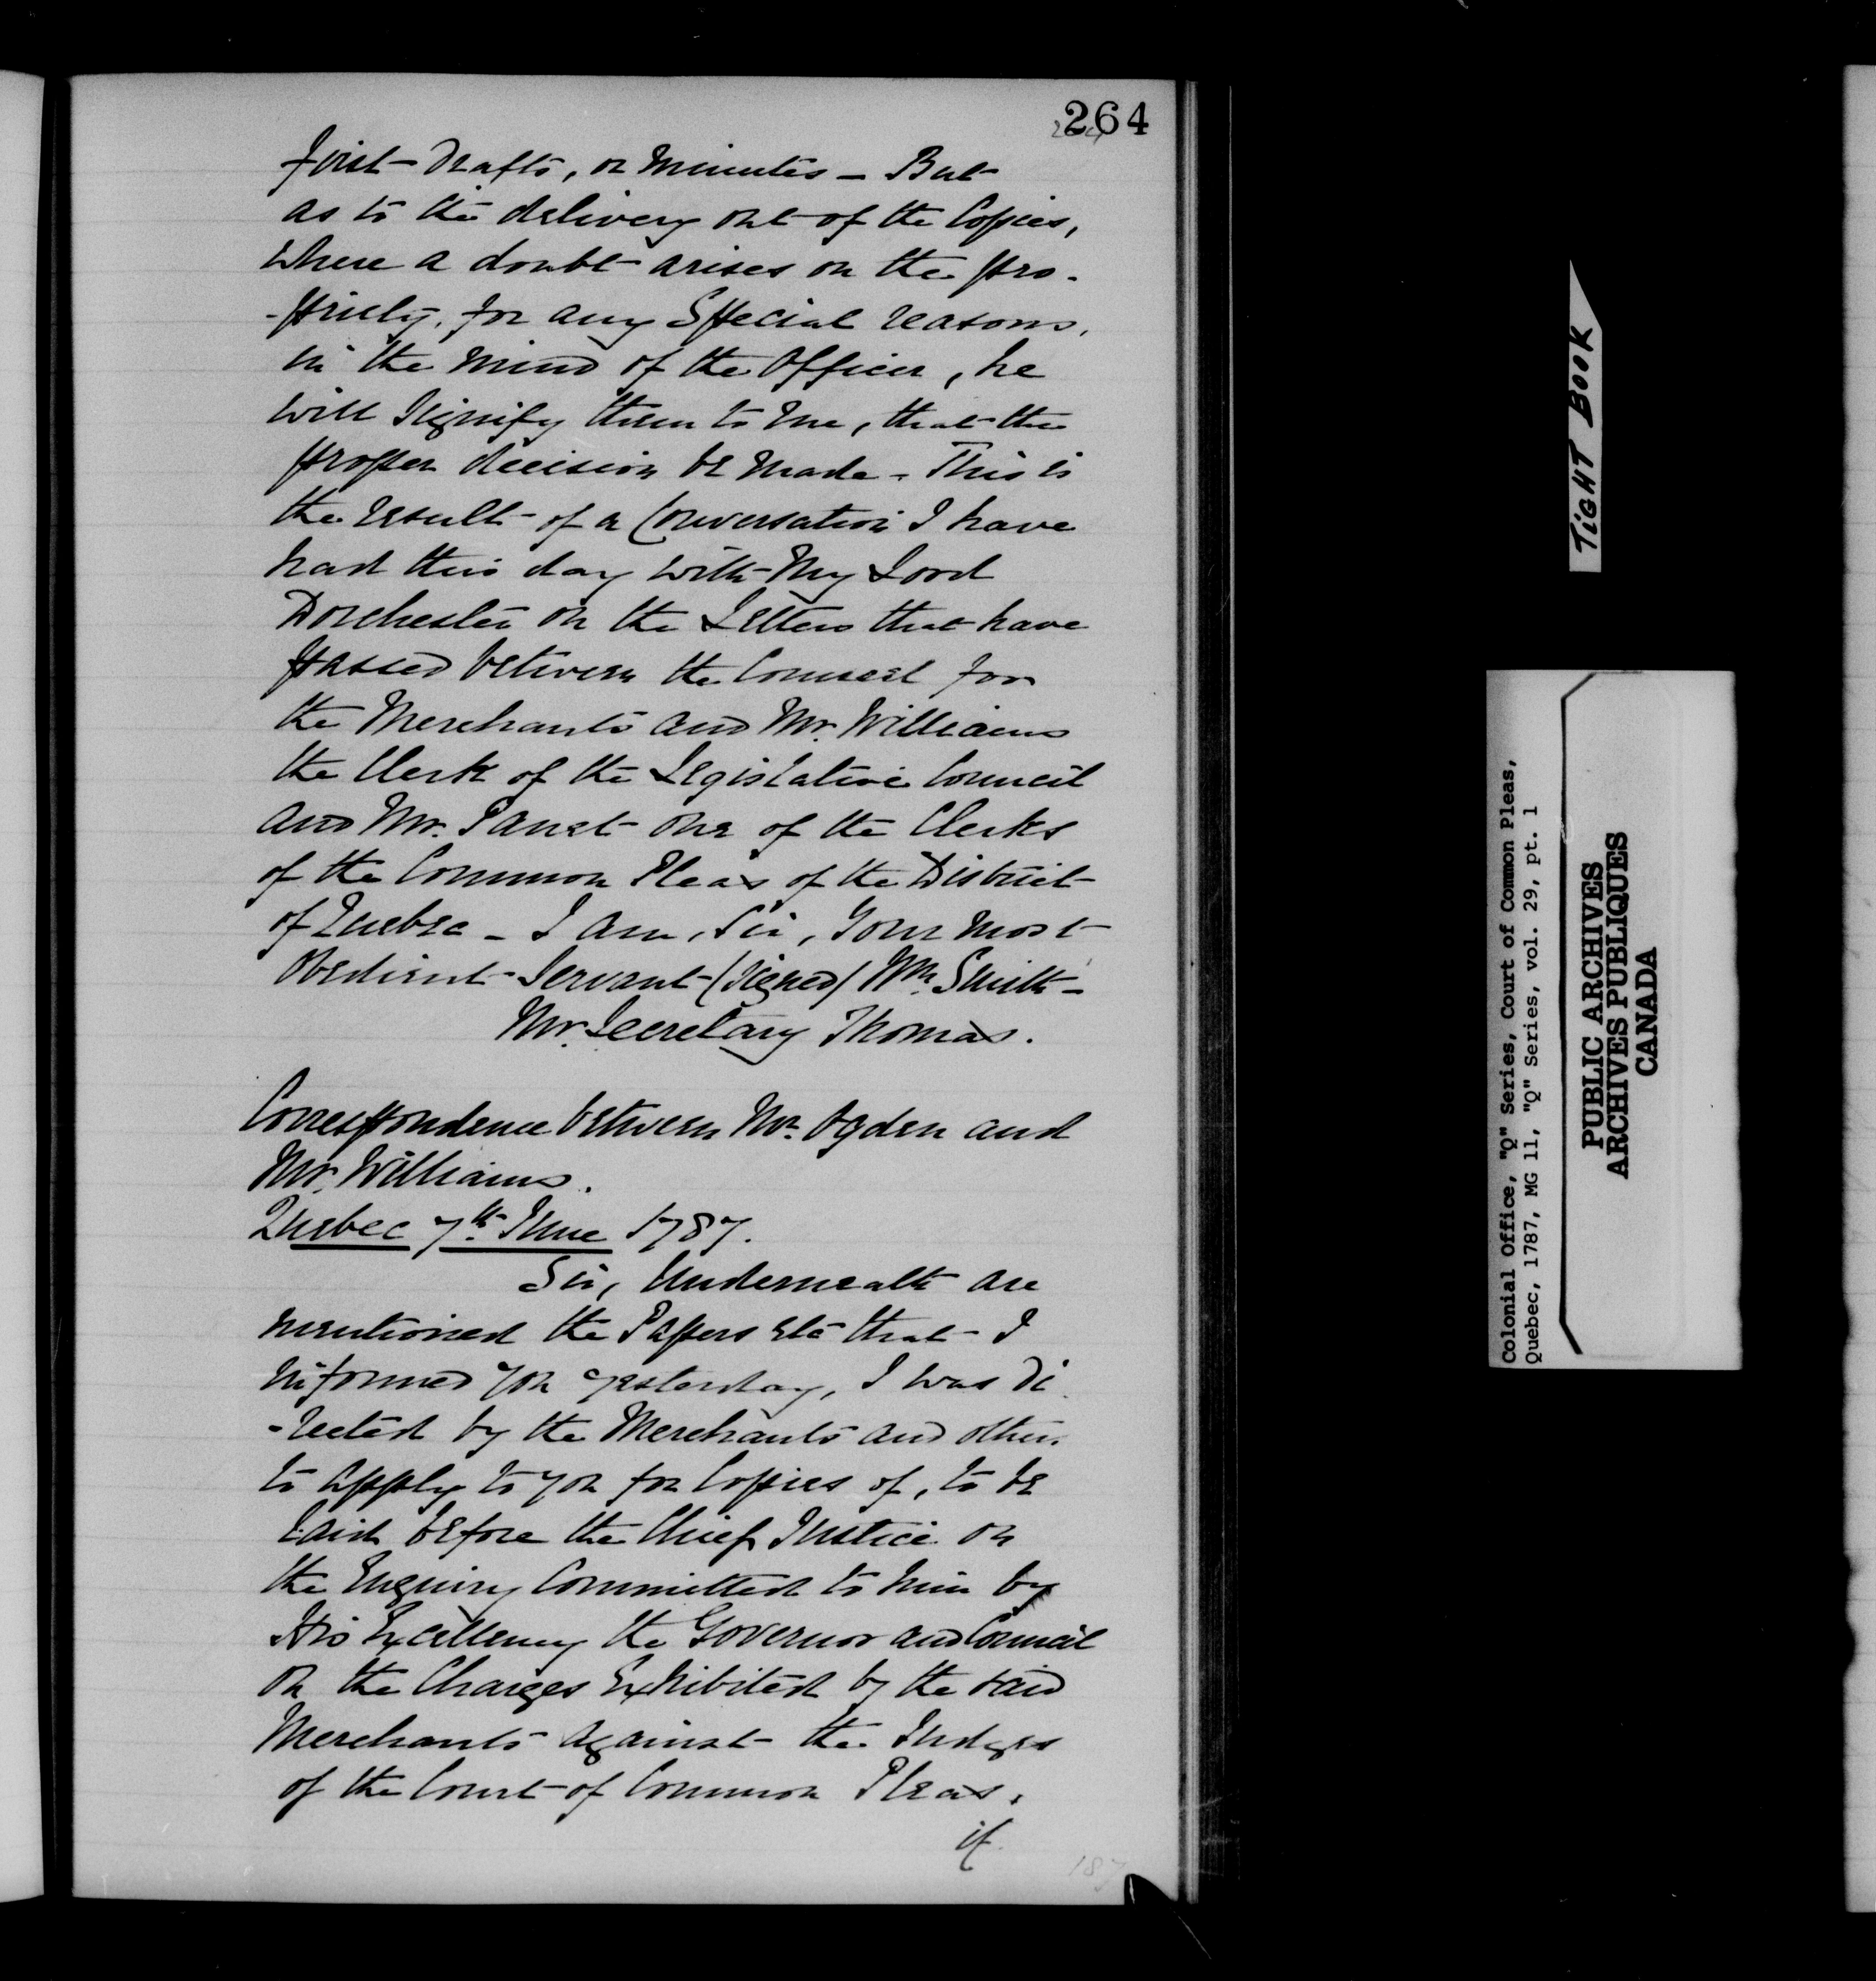 264
first drafts, or Minutes – But
as to the delivery out of the Copies,
where a doubt arises on the pro-
-priety, for any Special reasons,
in the Mind of the Officer, he
will Signify them to me, that the
proper decision be made – This is
the result of a Conversation I have
had this day with My Lord
Dorchester on the Letters that have
passed between the Counsel for
the Merchants and Mr. Williams
the Clerk of the Legislative Council
and Mr. Panet one of the Clerks
of the Common Pleas of the District
of Quebec – I am, Sir, Your most
Obedient Servant (Signed) Wm. Smith –
Mr. Secretary Thomas.
Correspondence between Mr. Ogden and
Mr. Williams.
Quebec 7th June 1787.
Sir, Underneath are
mentioned the Papers etc that I
informed you yesterday, I was di
-rected by the Merchants and others
to apply to you for Copies of, to be
laid before the Chief Justice on
the Enquiry Committed to him by
His Excellency the Governor and Council
on the Charges Exhibited by the said
Merchants against the Judges
of the Court of Common Pleas.
if
187
TiGHT BOOK
Colonial Office, "Q" Series, Court of Common Pleas,
Quebec, 1787, MG 11, "Q" Series, vol. 29, pt. 1
PUBLIC ARCHIVES
ARCHIVES PUBLIQUES
CANADA